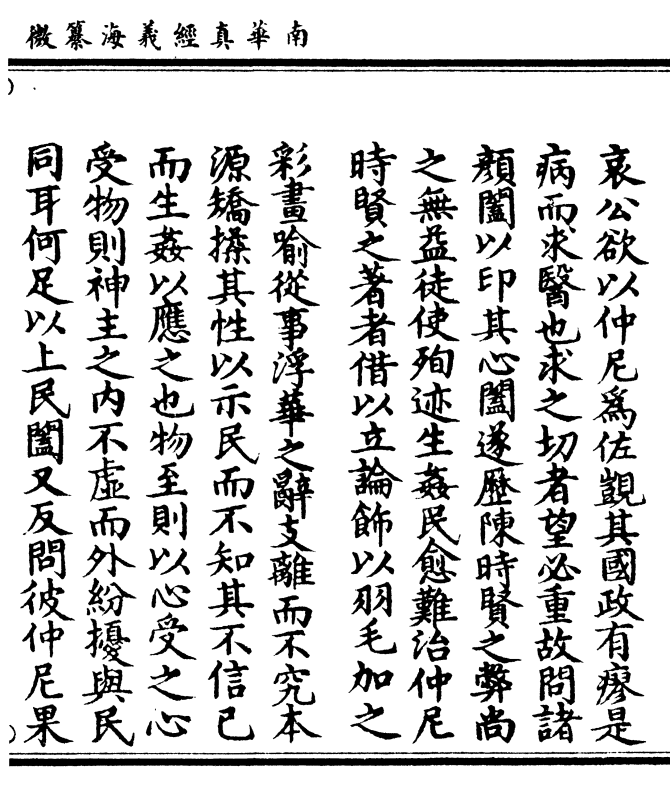 南華真經義海纂微
哀公欲以仲尼爲佐觀其國政有瘳是
病而求醫也求之切者望必重故問諸
顔闔以印其心闔遂歷陳時賢之弊尚
之無益徒使殉迹生姦民愈難治仲尼
時賢之著者借以立論飾以羽毛加之
彩畫喻從事浮華之辭支離而不究本
源矯揉其性以示民而不知其不信已
而生姦以應之也物至則以心受之心
受物則神主之内不虛而外紛擾與民
同耳何足以上民闔又反問彼仲尼果